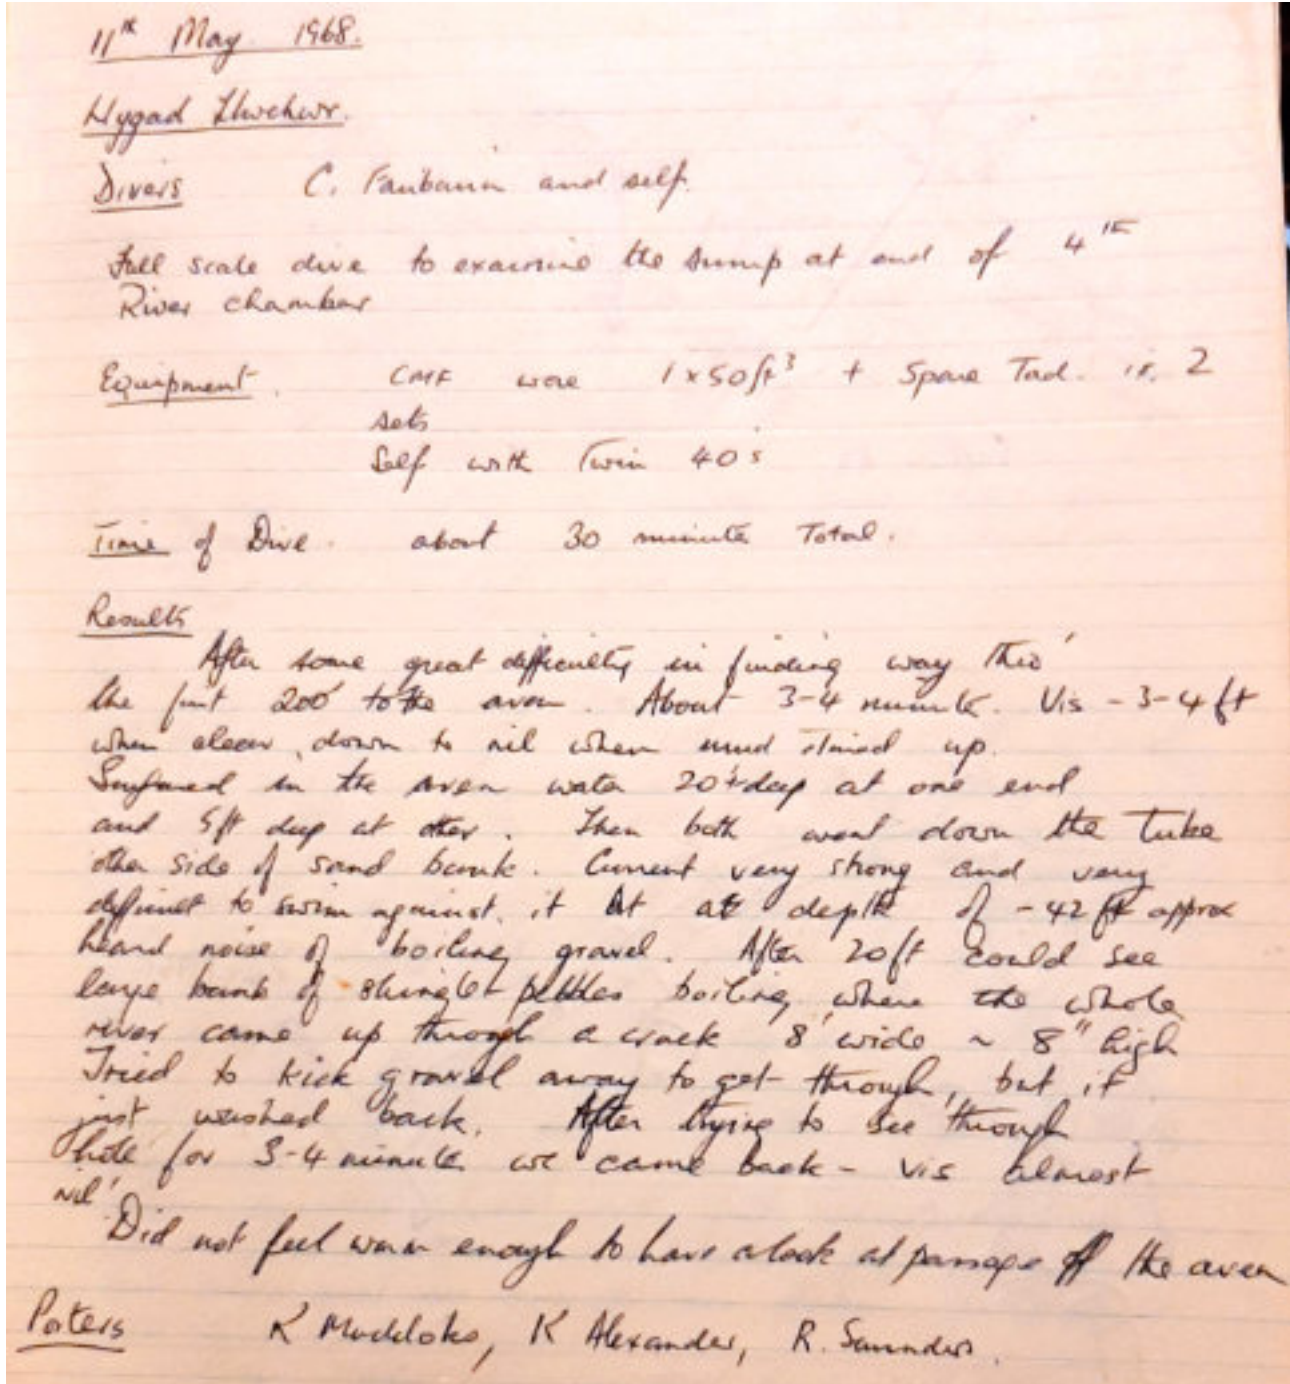 11th May 1968.
Llygad Llwchwr.
Divers C. Fairbairn and self.
Full scale dive to examine the sump at end of 4th
River chamber
Equipment. CMF wore 1 x 50ft³ + Spare Tad. ie. 2
sets
Self with Twin 40s
Time of Dive. about 30 minute Total.
Results
After some great difficulty in finding way thro'
the first 200' to the aven. About 3-4 minute. Vis - 3-4 ft
when clear, down to nil when mud stirred up.
Surfaced in the aven water 20' deep at one end
and 5ft deep at other. Then both went down the tube
other side of sand bank. Current very strong and very
difficult to swim against. it At at depth of -42 ft approx
heard noise of boiling gravel. After 20ft could see
large bank of shingle pebbles boiling, where the whole
river came up through a crack 8' wide ~ 8" high
Tried to kick gravel away to get through, but it
just washed back. After trying to see through
hole for 3-4 minute we came back - vis almost
nil!
Did not feel warm enough to have a look at passage off the aven
Porters K Maddoks, K Alexander, R. Saunders.